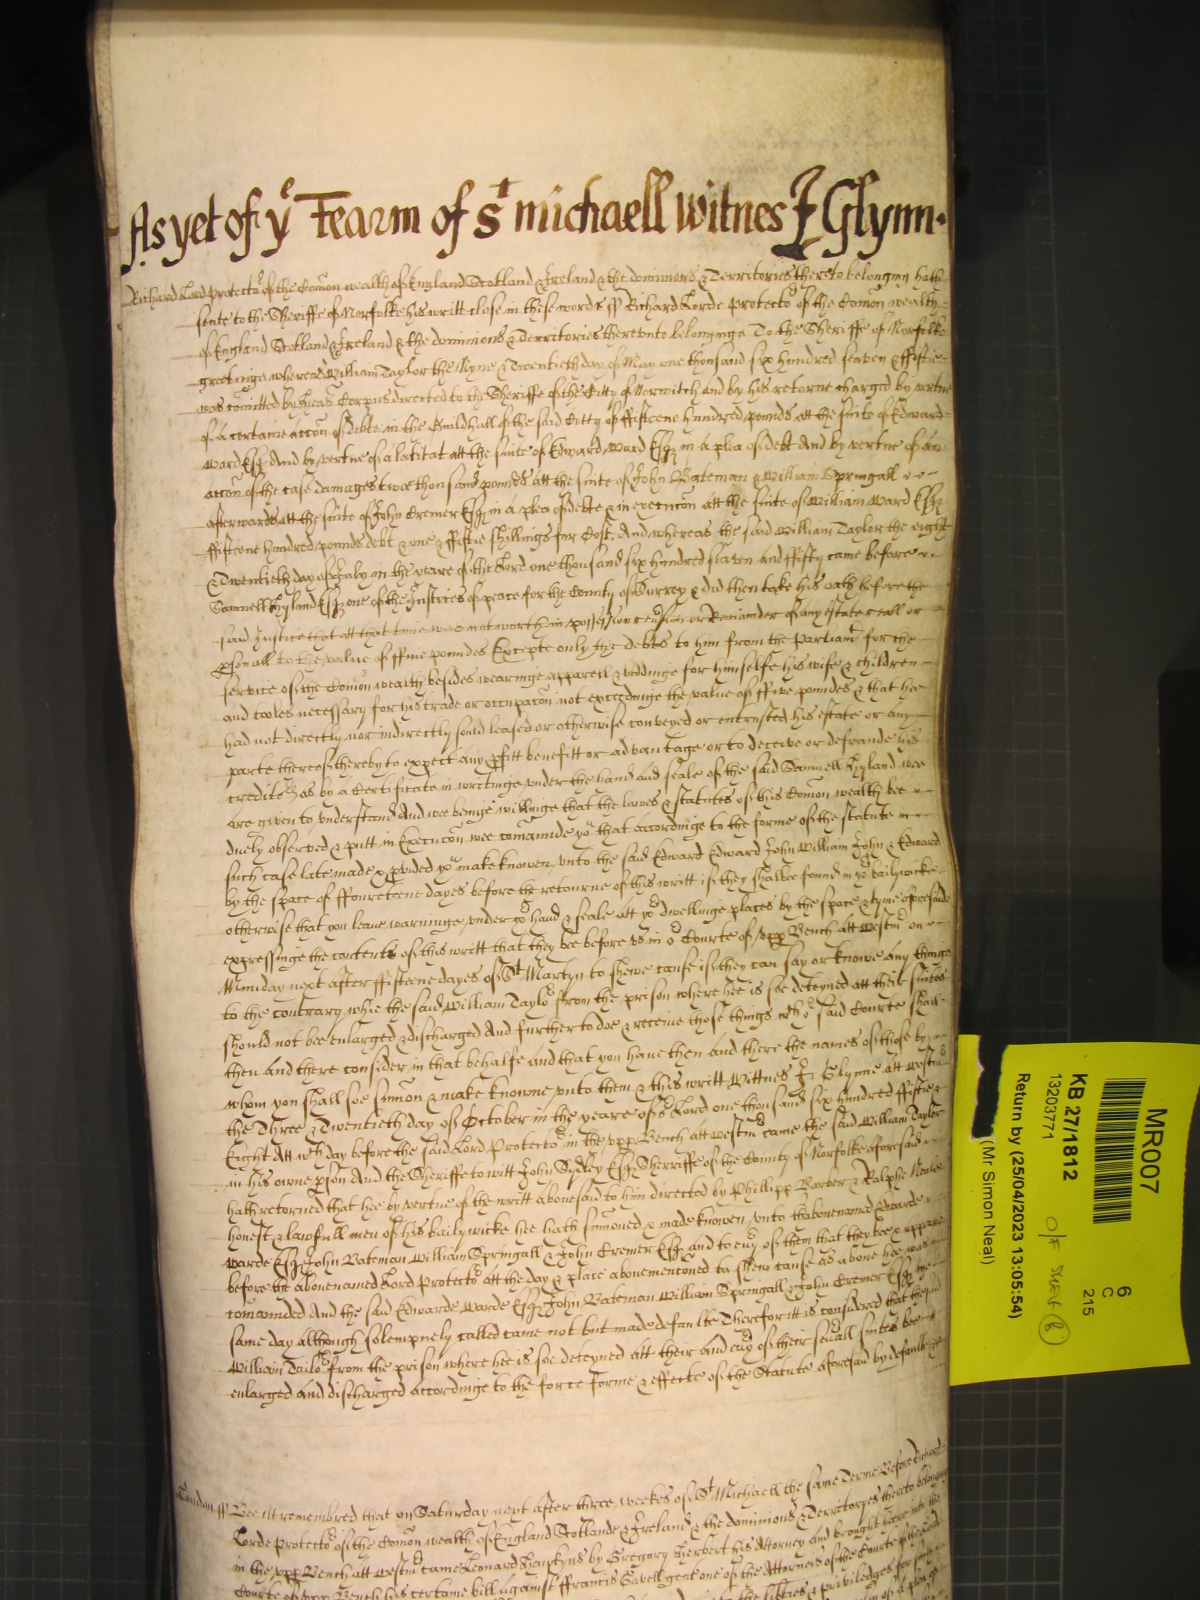 As yet of yᵉ Tearm of Sᵗ michaell Witnes J Glynn.
Richard Lord Protectoʳ of the Comon wealth of England Scotland & Ireland & the dominions & Territories thereto belonging hath
sente to the Sheriffe of Norfolke his writt close in these words ss Richard Lorde Protectoʳ of the Comon wealth
of England Scotland & Ireland & the dominions & Territories therevnto belonginge To the Sheriffe of Norfolke
greetinge whereas William Taylor the Nyne & Twentieth day of May one thousand six hundred seaven & ffiftie
was comitted by Heas Corpus directed to the Sheriffe of the Citty of Norwitch and by his retorne charged by vertue
of a certaine accon of debte in the Guildhall of the said Citty of ffifteene hundred pounds att the suite of Edward
Ward Esqʳ And by vertue of a latitat att the suite of Edward Ward Esqʳ in a plea of debt And by vertue of an
accon of the case damages twoe thousand pounds att the suite of John Bateman & William Springall
afterwards att the suite of John Cremer Esqʳ in a plea of debte & in execucon att the suite of William Ward Esqʳ
ffifteene hundred pounds debt & one & ffiftie shillings for Cost. And whereas the said William Taylor the eight
& Twentieth day of July in the yeare of the Lord one thousand six hundred seaven and ffifty came before
Samuell Hyland Esqʳ one of the Justices of peace for the County of Surrey & did then take his oath before the
said Justice that att that time was not worth in possession recusion or Remainder of any estate reall or
psonall to the value of ffiue poundes Excepte only the debts to him from the Parliamᵗ for the
service of the Comon wealth besides wearinge apparell & beddinge for himselfe his wife & children
and tooles necessary for his trade or occupacon not exceedinge the value of ffive poundes & that hee
had not directly nor indirectly sould leased or otherwise conveyed or entrusted his estate or any
parte thereof thereby to expect any pfitt benefitt or advantage or to deceive or defraude his
creditoʳs as by a Certificate in writinge vnder the hand and seale of the said Samuell Hyland wee
are given to vnderstand And wee beinge willinge that the lawes & statutes of this Comon wealth bee
duely observed & putt in Execucon wee comaunde yoᵘ that accordinge to the forme of the statute in
such case late made & pvided yoᵘ make knowen vnto the said Edward Edward John William John & Edward
by the space of ffoureteene dayes before the retourne of this writt if they shalbee found in yoʳ bailywicke
otherwise that you leave warninge vnder yoʳ hand & seale att yoʳ dwellinge places by the space & tyme aforesaide
expressinge the contents of this writt that they bee before vs in oʳ Courte of vpp Bench att Westmʳ on
Munday next after ffifteene dayes of Sᵗ Martyn to shewe cause if they can say or knowe any thinge
to the contrary why the said William Tayloʳ from the prison where hee is soe deteyned att their suites
should not bee enlarged & discharged And further to doe & receive those things wᶜʰ oʳ said Courte shall
then and there consider in that behalfe and that you haue then and there the names of those by
whom you shall soe sumon & make knowne vnto them & this writt Wittnes J Glynne att Westmʳ
the Three & Twentieth day of October in the yeare of oʳ Lord one thousand six hundred ffiftie
Eight Att wᶜʰ day before the said Lord Protectoʳ in the vpp Bench att westmʳ came the said William Taylor
in his owne pson And the Sheriffe to witt John Sydley Esqʳ Sherriffe of the County of Norfolke aforesaid
hath returned that hee by vertue of the writt abouesaid to him directed by Phillipp Barber & Ralphe Neale
honest & lawfull men of his bailywicke hee hath sumoned & made knowen vnto thabouenamed Edwarde
Warde Esqʳ John Bateman William Springall & John Cremer Esqʳ and to euy of them that they bee & appeare
before the abouenamed Lord Protectoʳ att the day & place abouementioned to shew cause as aboue hee was
comaunded And the said Edwarde Warde Esqʳ John Bateman William Springall & John Cremer Esqʳ the
same day although solempnely called came not but made defaulte Therefor itt is considered that the said
William Tailoʳ from the prison where hee is soe deteyned att their and euy of their seuall suites bee
enlarged and discharged accordinge to the force forme & effecte of the Statute aforesaid by defaulte
London ss Bee itt remembred that on Saturday next after three weekes of Sᵗ Michaell the same Terme Before Richard
Lorde Protectoʳ of the Comon wealth of England Scotlande & Ireland & the dominions & Territoryes thereto belonging
in the vpp Bench att westmʳ came Leonard by Gregory Herbert his Attorney and brought here into the
Courte of vpp Bench his certaine bill against ffrancis Savell gent one of the Attorneys of the Courte
the liberties & priviledges
MR007
6
C
215
KB 27/1812
13203771
Return by (25/04/2023 13:05:54)
(Mr Simon Neal)